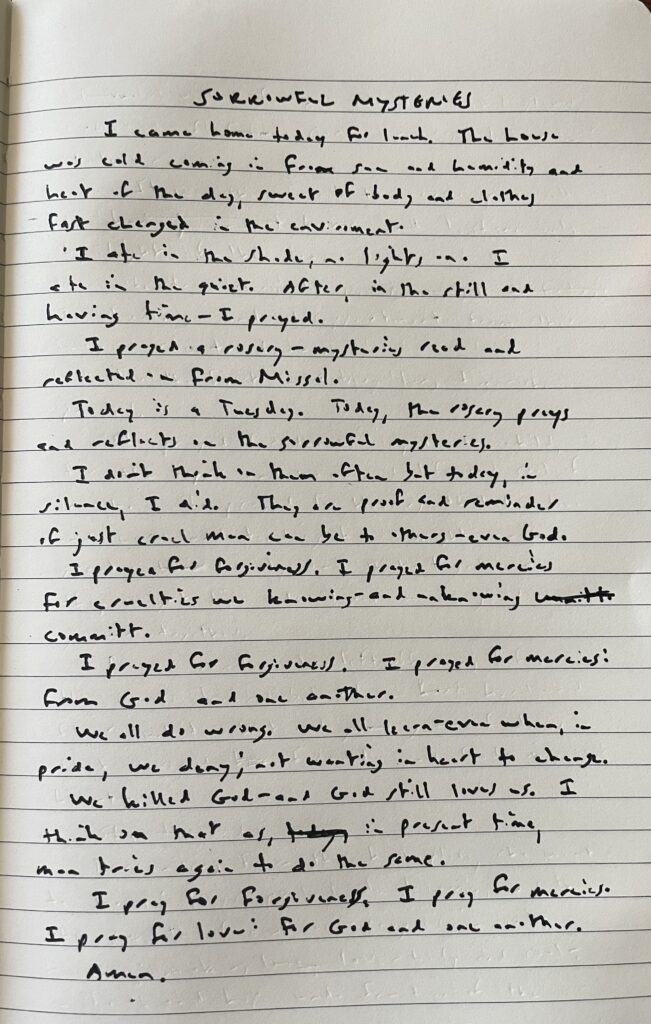 SORROWFUL MYSTERIES
I came home today for lunch. The house
was cold coming in from sun and humidity and
heat of the day, sweat of body and clothes
fast changed in the enviroment.
I ate in the shade, no lights on. I
ate in the quiet. After, in the still and
having time-I prayed.
I prayed a rosary-mysteries read and
reflected on from Missal.
Today is a Tuesday. Today, the rosary prays
and reflects on the sorrowful mysteries.
I don't think on them often but today, in
silence, I did. They are proof and reminder
of just cruel man can be to others-even God.
I prayed for forgiveness. I prayed for mercies
for cruelties we knowing-and unknowing
committ.
I prayed for forgiveness. I prayed for mercies:
from God and one another.
We all do wrong. We all learn-even when, in
pride, we deny; not wanting in heart to change.
We killed God-and God still loves us. I
think on that as, in present time,
man tries again to do the same.
I pray for forgiveness, I pray for mercies.
I pray for love: for God and one another.
Amen.